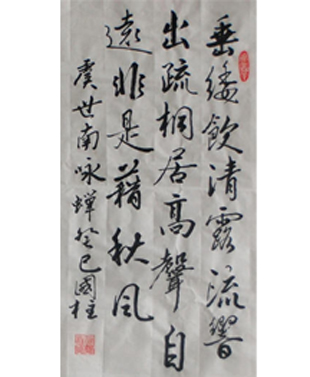 垂緌飲清露流響
出疏桐居高聲自
遠非是藉秋風
虞世南咏蟬癸巳國柱